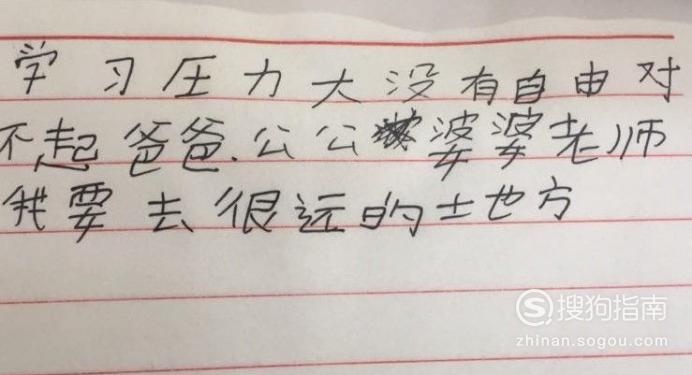 学习压力大没有自由对
不起爸爸.公公婆婆老师
我要去很远的地方
搜狗指南
zhinan.sogou.com